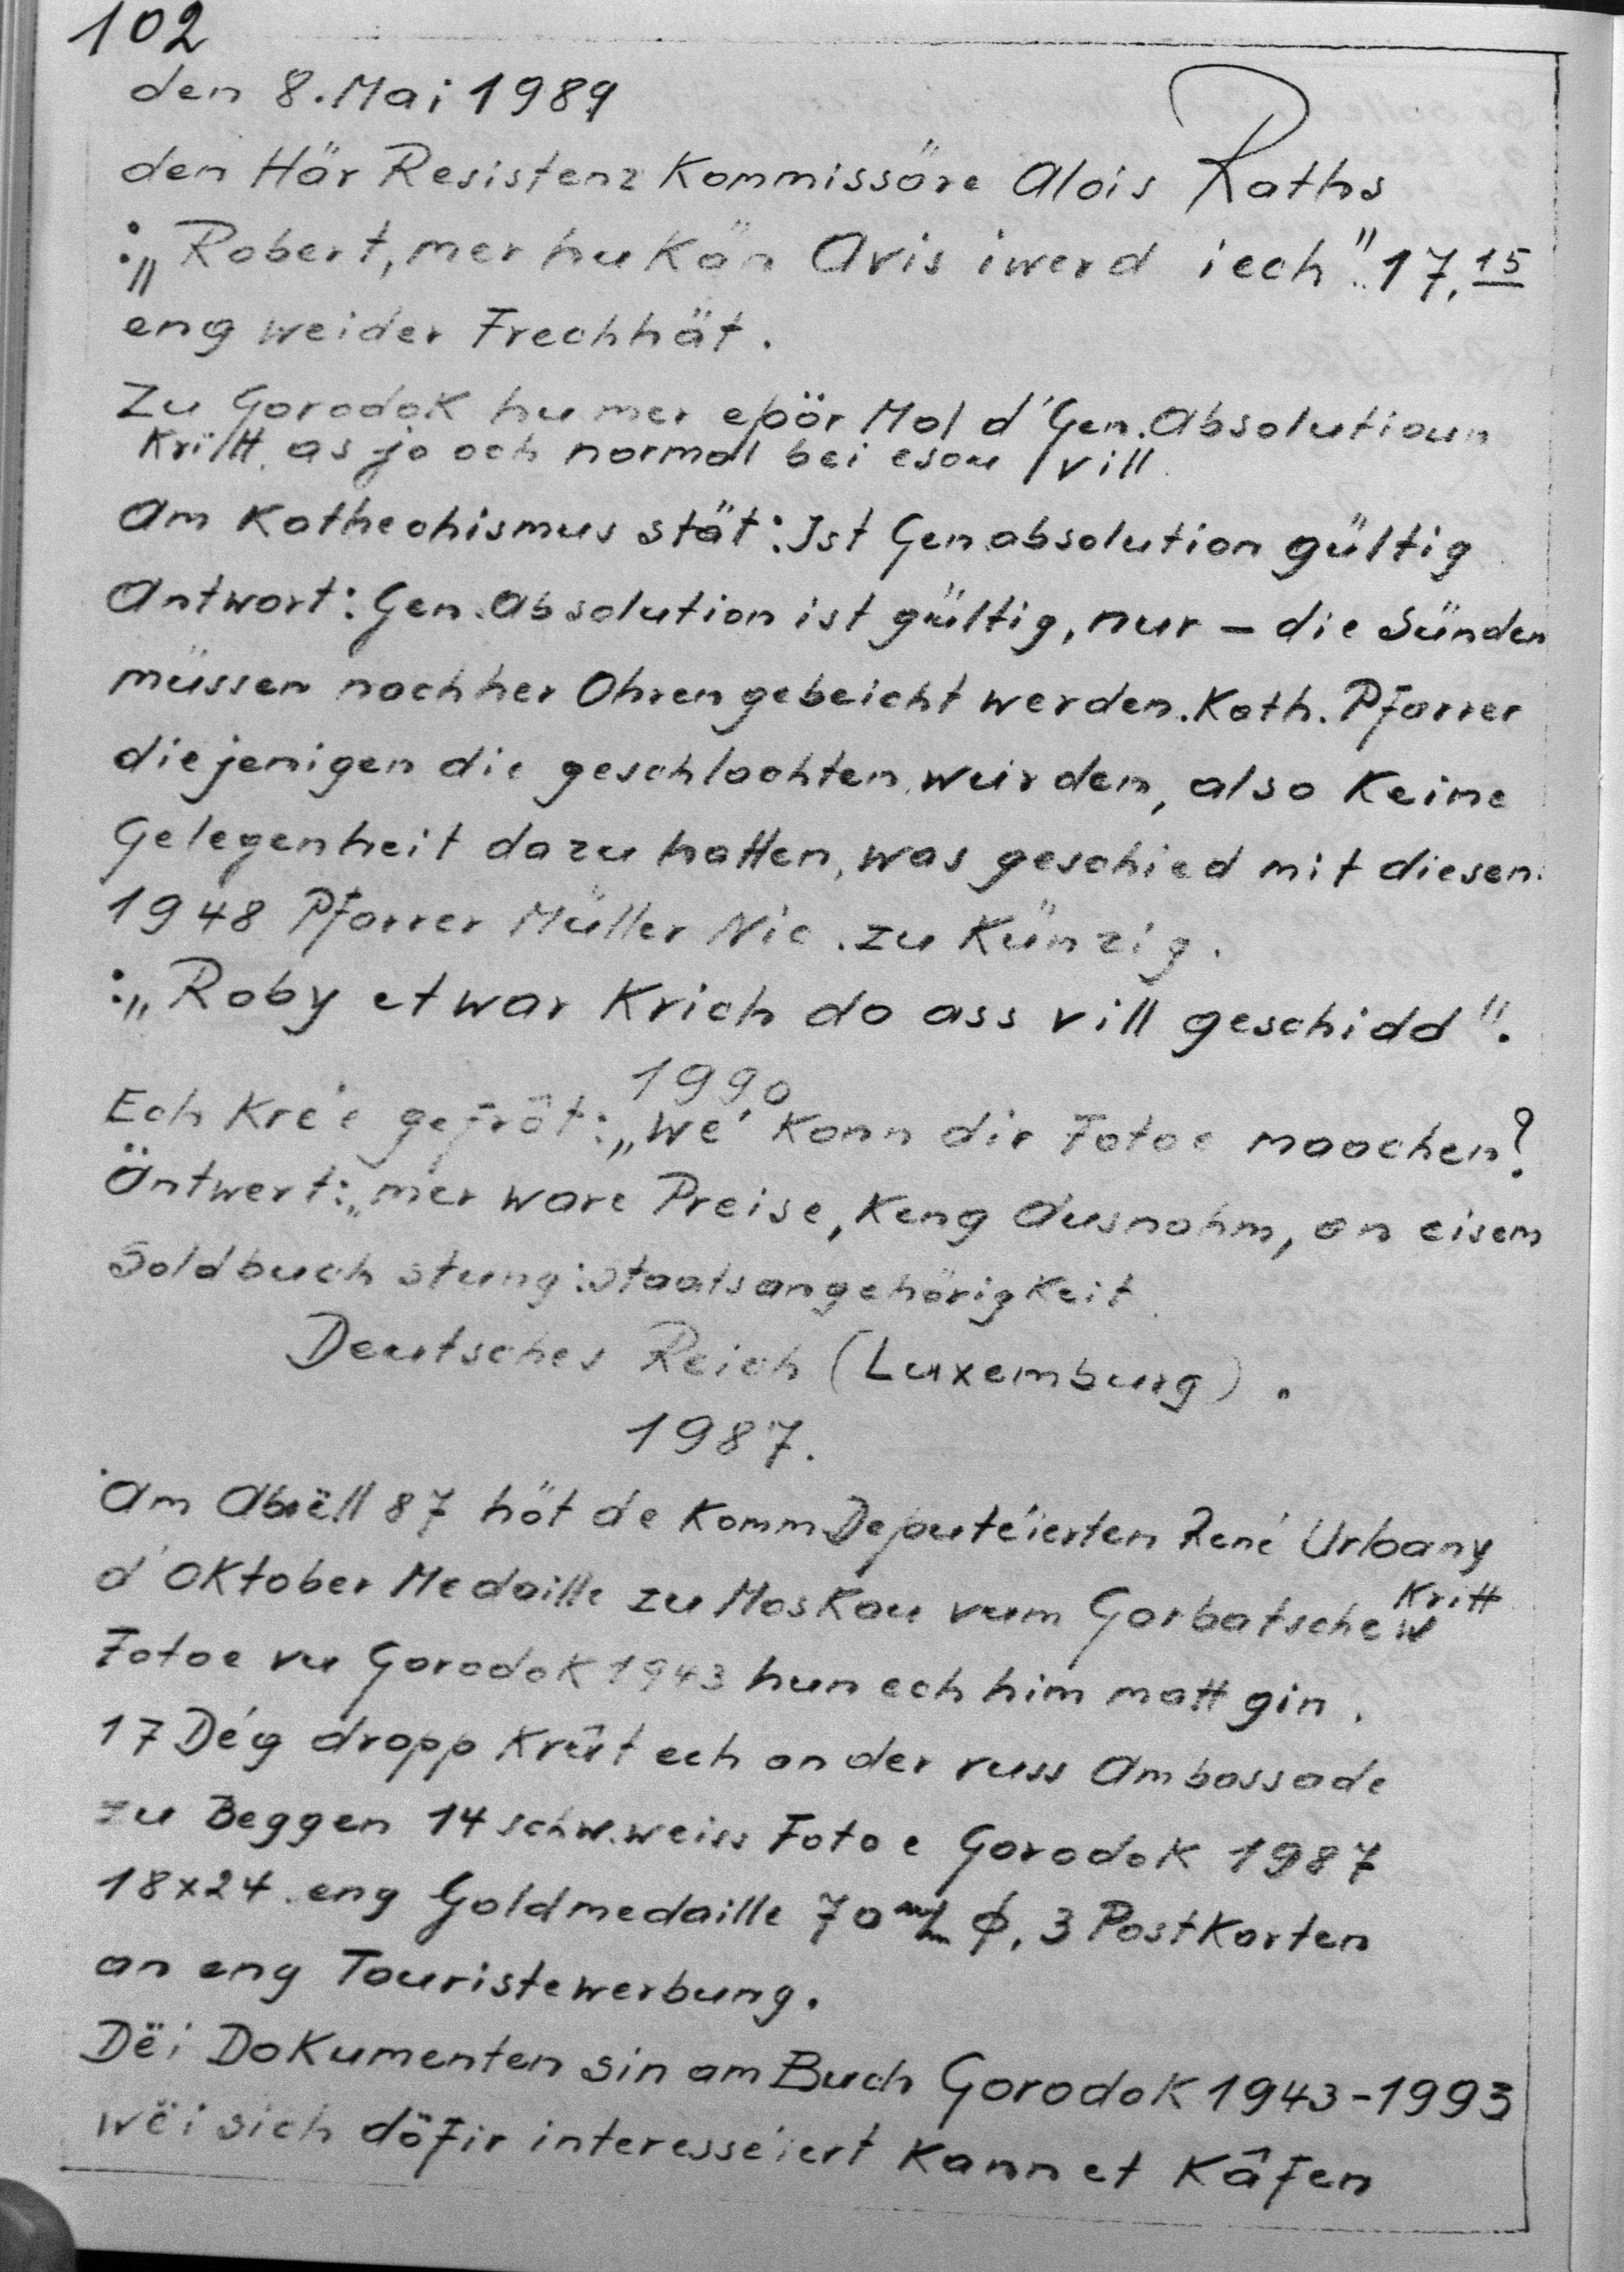 102
den 8. Mai 1989
den Här Resistenz Kommissäre Alois Raths
:„Robert, mer hu Kän Avis iwerd iech". 17,15
eng weider Frechhät.
Zu Gorodok hu mer epör Mol d'Gen. Absolutioun
Kritt, as jo och normal bei esou vill.
Am Kathechismus stät: Ist Gen.absolution gültig
Antwort: Gen. Absolution ist gültig, nur – die Sünden
müssen nachher Ohrengebeicht werden. Kath. Pfarrer
diejenigen die geschlachten wurden, also Keine
Gelegenheit dazu hatten, was geschied mit diesen.
1948 Pfarrer Müller Nic. zu Künzig.
:„Roby et war Krich do ass vill geschidd".
1990
Ech Kréie gefrôt: „Wé Konn dir Fotoe maachen?
Äntwert: „mer ware Preise, Keng Ausnahm, an eisem
Soldbuch stung: Staatsangehörigkeit
Deutsches Reich (Luxemburg).
1987.
Am Abrëll 87 höt de Komm Deputéierten René Urbany
d'Oktober Medaille zu Moskau vum Gorbatschew Kritt
Fotoe vu Gorodok 1943 hun ech him matt gin.
17 Dég dropp Krût ech an der russ Ambassade
zu Beggen 14 schw.weiss Fotoe Gorodok 1987
18x24. eng Goldmedaille 70 m/m ϕ, 3 Postkarten
an eng Touristewerbung.
Dëi Dokumenten sin am Buch Gorodok 1943-1993
wëi sich döfir interesséiert Kann et Kâfen